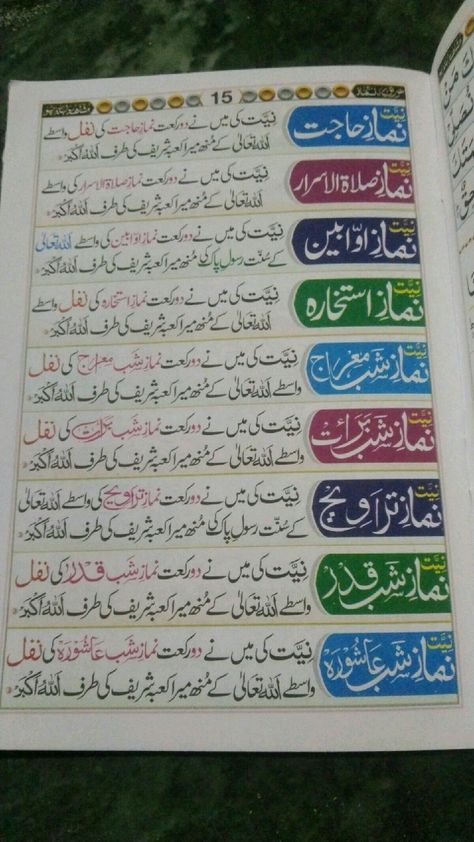 15
نیّت
نمازِ حاجت
نیّت کی میں نے دو رکعت نمازِ حاجت کی نفل واسطے
اللہ تعالیٰ کے منھ میرا کعبہ شریف کی طرف اَللهُ اَكْبَرْ
نیّت
نمازِ صلاۃ الاسرار
نیّت کی میں نے دو رکعت نماز صلاۃ الاسرار کی واسطے
اللہ تعالیٰ کے منھ میرا کعبہ شریف کی طرف اَللهُ اَكْبَرْ
نیّت
نمازِ اوّابین
نیّت کی میں نے دو رکعت نماز اوّابین کی واسطے اللہ تعالیٰ
کے سُنّت رسولِ پاک کی منھ میرا کعبہ شریف کی طرف اَللهُ اَكْبَرْ
نیّت
نمازِ استخارہ
نیّت کی میں نے دو رکعت نمازِ استخارہ کی نفل واسطے
اللہ تعالیٰ کے منھ میرا کعبہ شریف کی طرف اَللهُ اَكْبَرْ
نیّت
نمازِ شبِ معراج
نیّت کی میں نے دو رکعت نمازِ شبِ معراج کی نفل
واسطے اللہ تعالیٰ کے مُنھ میرا کعبہ شریف کی طرف اَللهُ اَكْبَرْ
نیّت
نمازِ شبِ بَرأت
نیّت کی میں نے دو رکعت نمازِ شبِ برأت کی نفل
واسطے اللہ تعالیٰ کے مُنھ میرا کعبہ شریف کی طرف اَللهُ اَكْبَرْ
نیّت
نمازِ تراویح
نیّت کی میں نے دو رکعت نماز تراویح کی واسطے اللہ تعالیٰ
کے سُنّت رسول پاک کی مُنھ میرا کعبہ شریف کی طرف اَللهُ اَكْبَرْ
نیّت
نمازِ شبِ قدر
نیّت کی میں نے دو رکعت نمازِ شبِ قدر کی نفل
واسطے اللہ تعالیٰ کے مُنھ میرا کعبہ شریف کی طرف اَللهُ اَكْبَرْ
نیّت
نمازِ شبِ عاشورہ
نیّت کی میں نے دو رکعت نمازِ شبِ عاشورہ کی نفل
واسطے اللہ تعالیٰ کے مُنھ میرا کعبہ شریف کی طرف اَللهُ اَكْبَرْ